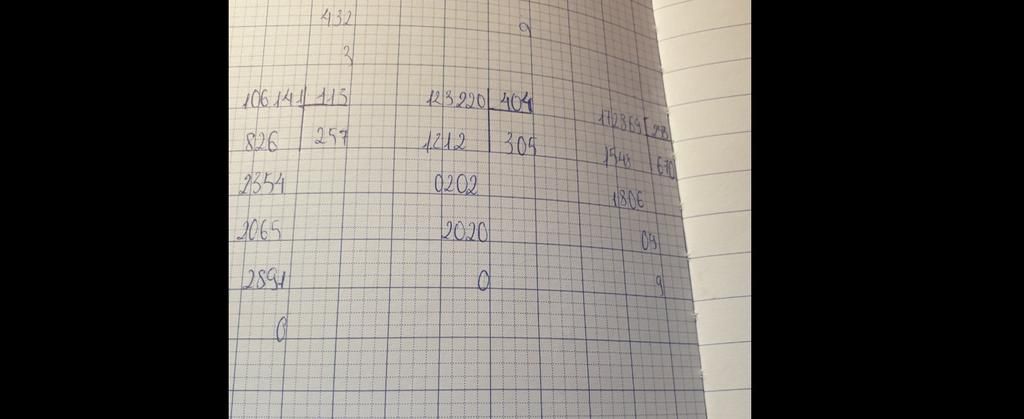 432 9
3
106141 113 123220 404 172869
826 257 1212 305 1548 670
2354 0202 1806
2065 2020 09
2891 0 9
0